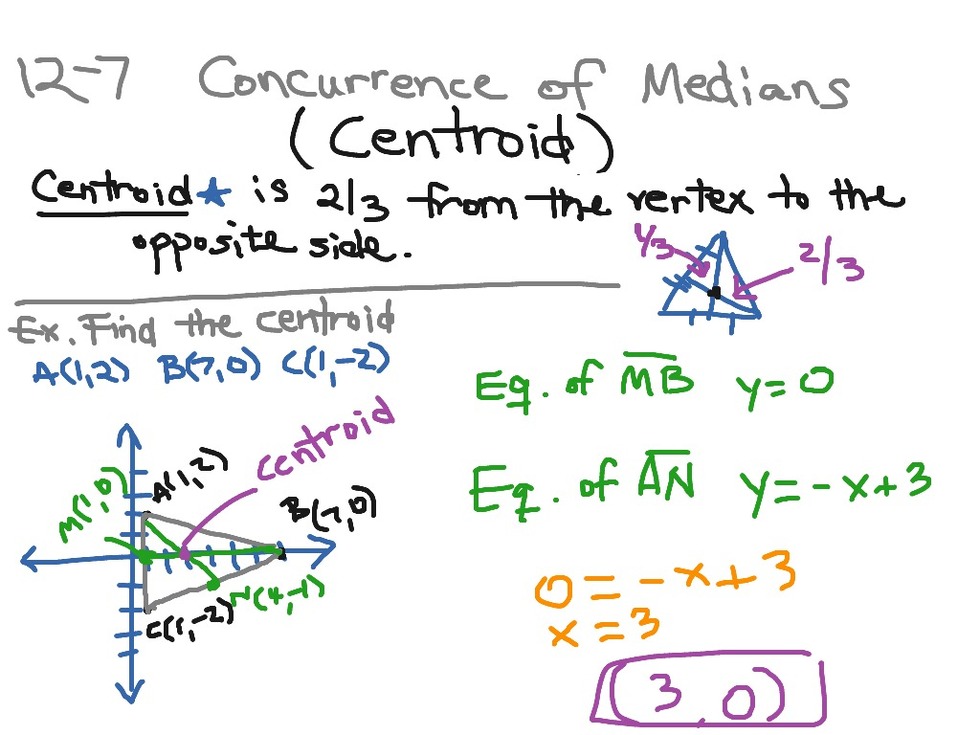 12-7 Concurrence of Medians
(Centroid)
Centroid★ is 2/3 from the vertex to the
opposite side.
1/3
2/3
Ex. Find the centroid
A(1,2) B(7,0) C(1,-2)
Eq. of MB y=0
centroid
A(1,2)
M(1,0)
B(7,0)
Eq. of AN y=-x+3
N(4,-1)
C(1,-2)
0=-x+3
x=3
(3,0)